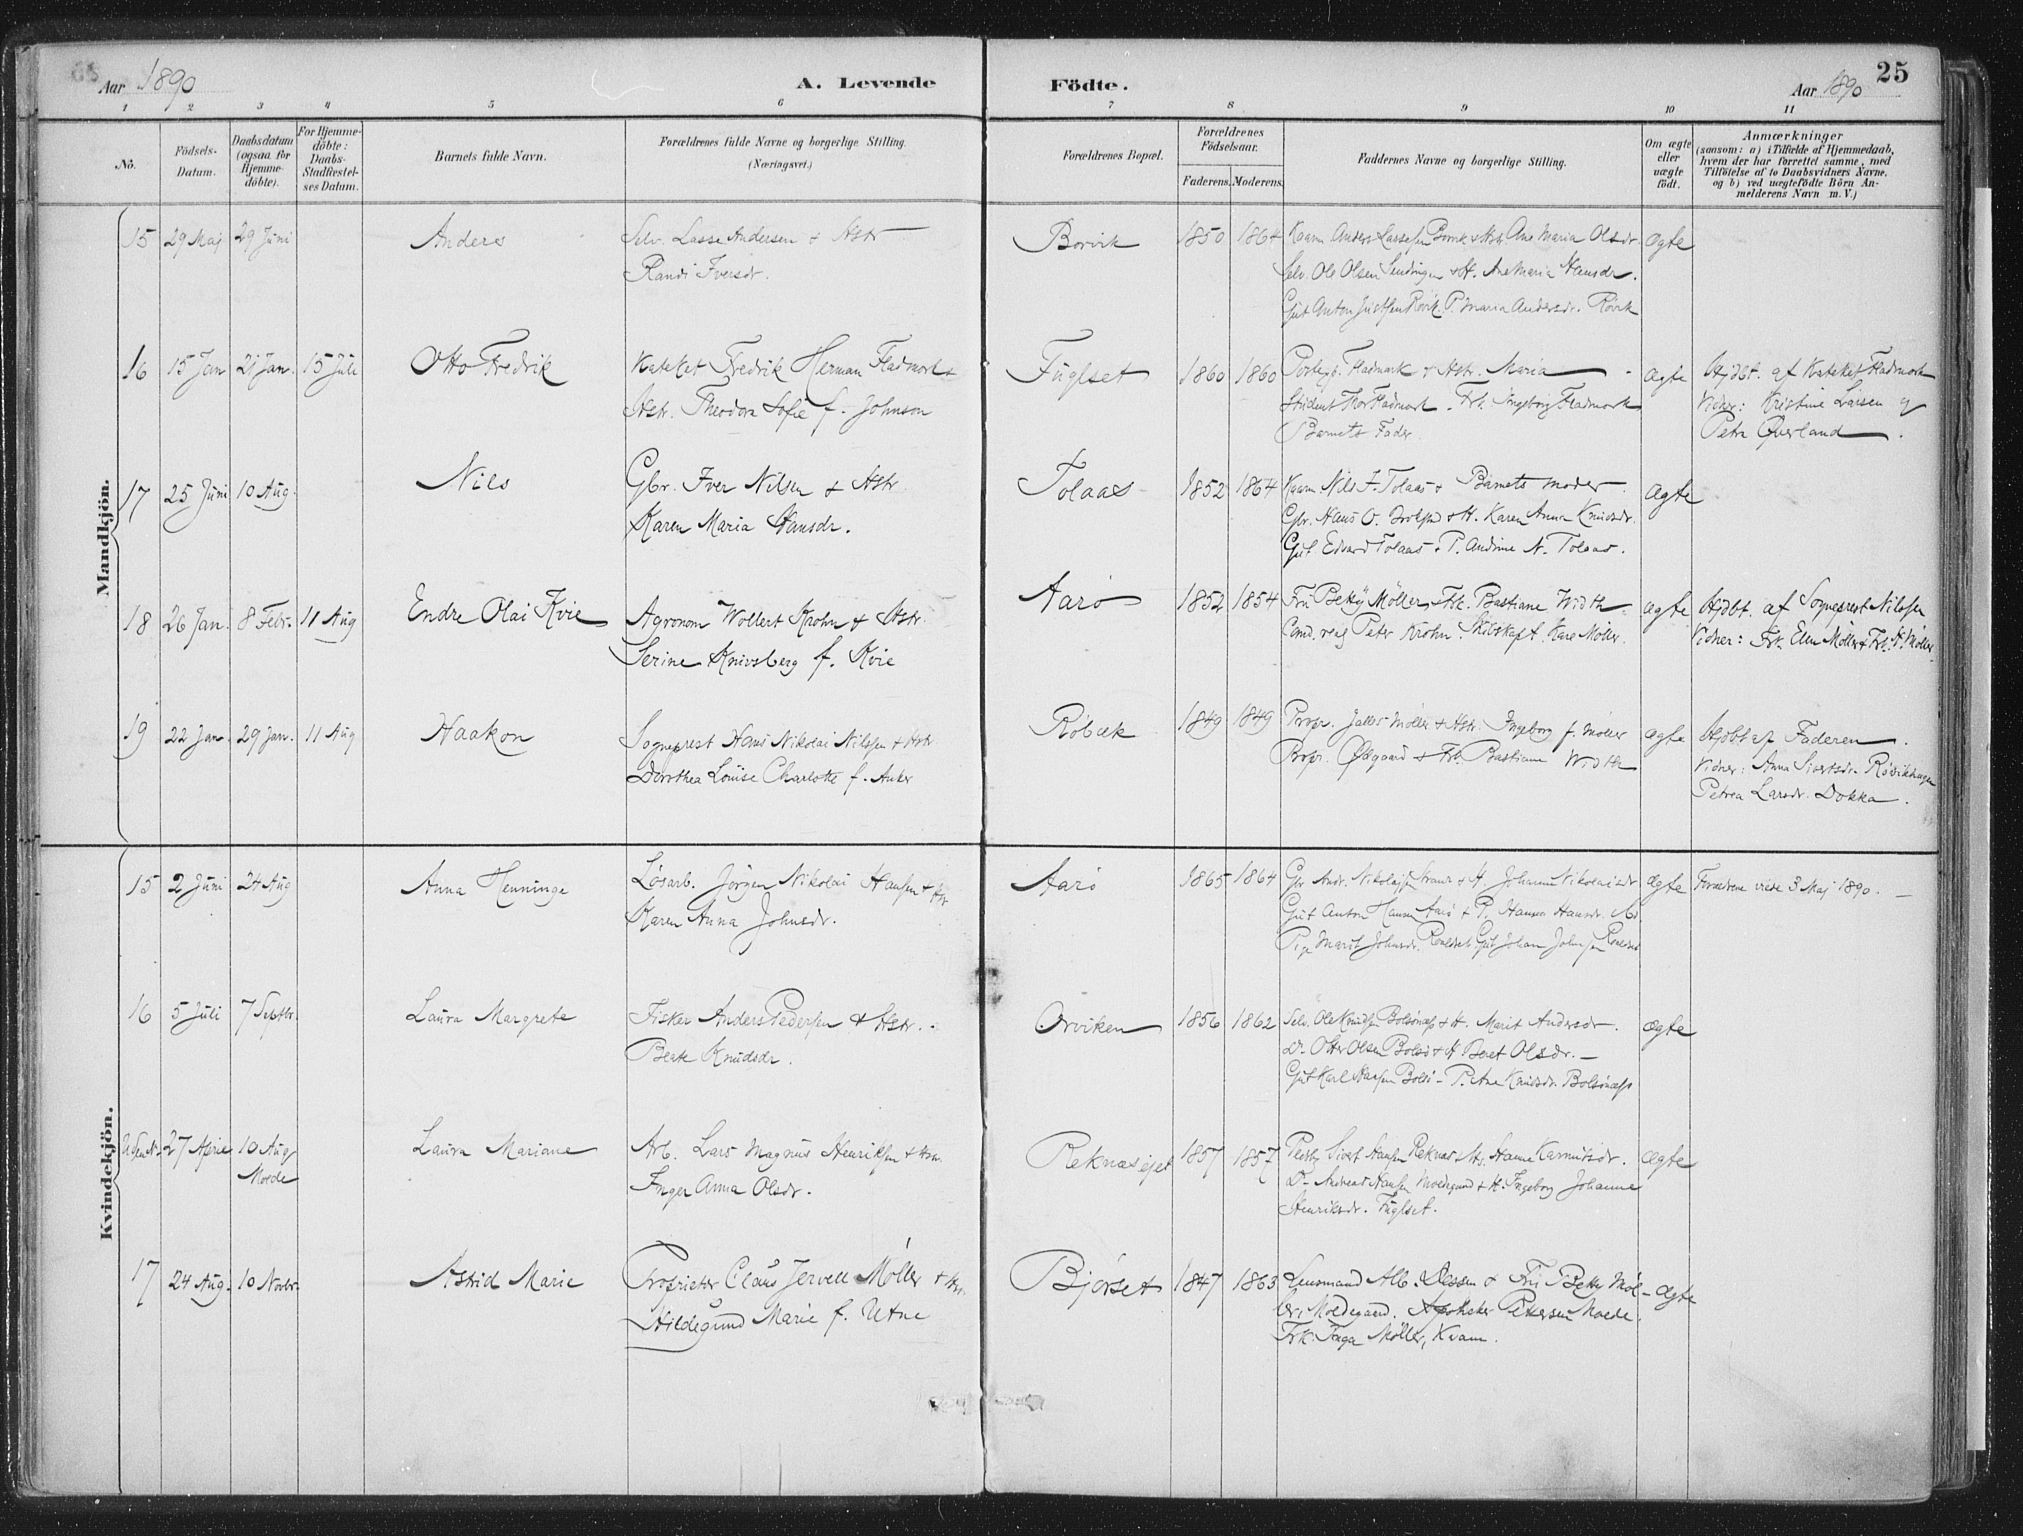 Aar 1890
A. Levende
Födte.
Aar 1890
25
1 2 3 4 5 6 7 8 9 10 11
No.
Födsels-
Datum.
Daabsdatum
(ogsaa for
Hjemme-
döbte).
For Hjemme-
döbte:
Daabs-
Stadfæstel-
ses Datum.
Barnets fulde Navn.
Forældrenes fulde Navne og borgerlige Stilling.
(Næringsvei.)
Forældrenes Bopæl.
Forældrenes
Födselsaar.
Faderens. Moderens.
Faddernes Navne og borgerlige Stilling.
Om ægte
eller
uægte
födt.
Anmærkninger
(saasom: a) i Tilfælde af Hjemmedaab,
hvem der har forrettet samme, med
Tilföielse af to Daabsvidners Navne,
og b) ved uægtefödte Börn An-
melderens Navn m. V.)
Mandkjön.
15 29 Maj 29 Juni Anders Selv. Lasse Andersen & Hstr
Randi Iversdr.
Borvik 1850 1864 Kaarm Anders Larsesen & Hstr. Ane Maria Olsdr. ægte
Selv. Ole Olsen & H. Ane Maria Hansdr.
Gut Anton Røvik. P. Maria Andersdr. Røvik
16 15 Jan 21 Jan. 15 Juli Otto Fredrik Kateket Fredrik Herman Fladmark &
Hstr. Theodora Sofie f. Johnson
Fuglset 1860 1860 Fladmark & Hstr. Maria ægte Hjdbt. af Kateket Fladmark
Student Thor Fladmark. Frk. Ingeborg Fladmark Vidner: Kristine Larsen og
Barnets Fader. Petra Qverland.
17 25 Juni 10 Aug. Nils Gbr. Iver Nilsen & Hstr.
Karen Maria Hansdr.
Tolaas 1852 1864 Kaarm Nils I. Tolaas & Barnets moder. ægte
Gbr. Hans O. & H. Karen Anna Knudsdr.
Gut Edvard Tolaas & P. Andrine N. Tolaas.
18 26 Jan. 8 Febr. 11 Aug Endre Olai Kvie Agronom Wollert Krohn & Hstr.
Serine Knivsberg f. Kvie
Aarö 1852 1854 Fru Betty Møller & Frk. Bastiane Width ægte Hjdbt. af Sogneprest Nilssen
Cand. real Peter Krohn. Skibskapt. Kare Møller. Vidner: Frk. Elen Møller & Frk. H. Møller.
19 22 Jan. 29 Jan. 11 Aug Haakon Sogneprest Hans Nikolai Nilssen & Hstr.
Dorothea Louise Charlotte f. Anker
Røbæk 1849 1849 Propr. Møller & Hstr. Ingeborg f. Møller ægte Hjdbt af Faderen.
Propr. Ødegaard & Frk. Bastiane Width Vidner: Anna Sivertsdr.
Petrea Larsdr. Dokka.
Kvindekjön.
15 2 Juni 24 Aug Anna Henninge Løsarb. Jörgen Nikolai Hansen & Hstr
Karen Anna Johnsdr.
Aarö 1865 1864 Gbr Andr. Nikolaisen & H. Johanne Nikolaisdr ægte Forældrene viede 3 Maj 1890.
Gut Anton Hansen Aarö & P. Hanna Hansdr.
Pige Marit Johnsdr. Gut Johan Johnsen
16 5 Juli 7 Septbr. Laura Margrete Fisker Anders Pedersen & Hstr.
Beate Knudsdr.
Orviken 1856 1862 Selv. Ole Knudsen Bolsönæs & H. Marit Andersdr. ægte
Do. Otter Olsen Bolsö & H. Beret Olsdr.
Gut Karl Hansen Bolsö - P. Ane Knudsdr. Bolsönæs
27 April 10 Aug Laura Mariane Arb. Lars Magnus Henriksen & Hstr.
Molde Inger Anna Olsdr.
Reknæsejet 1857 1857 Sivert Hansen Reknæs & H. Hanne ægte
Do Andreas Hansen Moldegaard & H. Ingeborg Johanne
Henriksdr. Fuglset.
17 24 Aug. 10 Novbr. Astrid Marie Proprietær Claus Jervell Møller & Hstr.
Hildegund Marie f. Utne
Bjørset 1847 1863 Lensmand Alb. Dessen & Fru Betty Möl- ægte
ler Moldegaard. Apotheker Petersen Molde.
Frk. Inga Møller, Kvam.